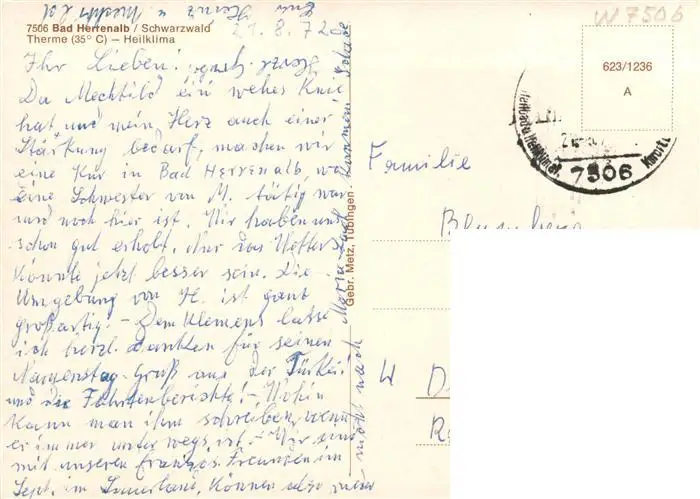 7506 Bad Herrenalb / Schwarzwald
Therme (35° C) – Heilklima
21.8.72
Ihr Lieben!
Da Mechtild ein wehes Knie
hat, und mein Herz auch einer
Stärkung bedarf, machen wir
eine Kur in Bad Herrenalb, wo
eine Schwester von M. tätig war
und noch hier ist. Wir haben uns
schon gut erholt, nur das Wetter
könnte jetzt besser sein. Die
Umgebung von H. ist ganz
großartig! – Dem Klemens lasse
ich herzl. danken für seinen
Namenstag-Gruß aus der Türkei
und die Fahrtenberichte! Wohin
kann man ihm schreiben, wenn
er immer unterwegs ist. – Wir sind
mit unseren französ. Freunden im
Sept. im Sauerland, können also
nicht nach Maria
Euer Heinz u. Mechtild
Gebr. Metz, Tübingen
W 7506
623/1236
A
7506
Familie
W